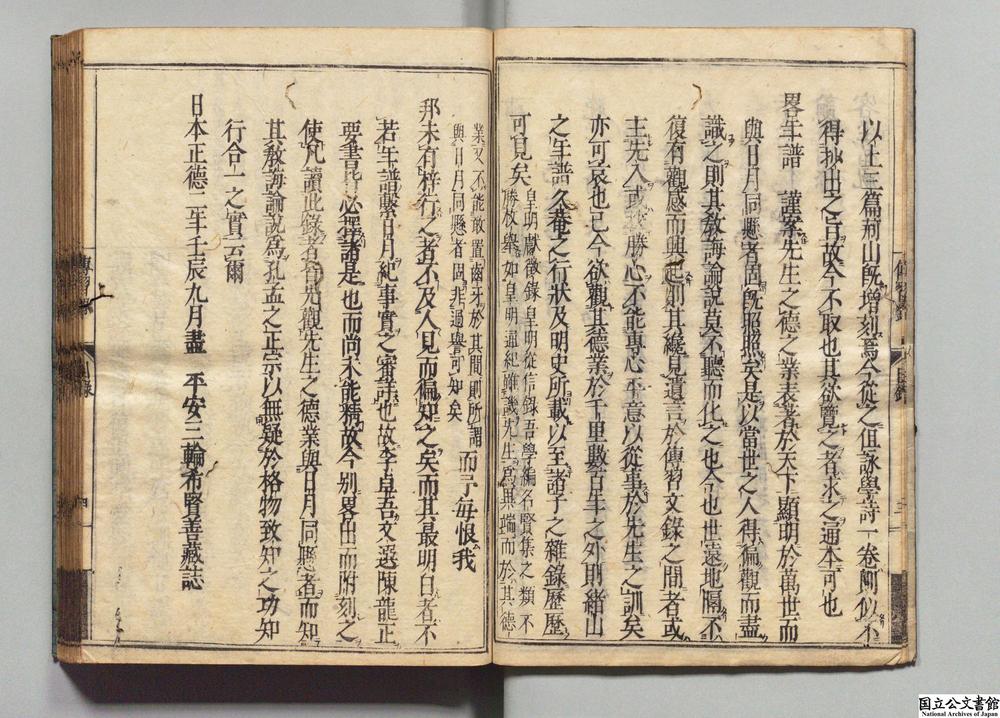 以上三篇荊山既增刻焉今從之但詠學詩一卷詞似不
得抄出之旨故今不取也其欲覽之者求之通本可也
畧年譜　謹案先生之德之業表著於天下顯明於萬世而
與日月同懸者固既照照矣是以當世之人得徧觀而盡
識之則其教誨論說莫不聽而化之也今也世遠地隔不
復有觀感而興起則其纔見遺言於傳習文錄之間者或
主先入或挾勝心不能專心平意以從事於先生之訓矣
亦可哀也已今欲觀其德業於千里數百年之外則緒山
之年譜久菴之行狀及明史所載以至諸子之雜錄歷歷
可見矣
皇明獻徵錄皇明從信錄吾學編名賢集之類不
勝枚舉如皇明通紀雖譏先生爲異端而於其德
業又不能敢置齒牙於其間則所謂
與日月同懸者固非過譽可知矣
而予每恨我
邦未有梓行之者不及人見而徧知之矣而其最明白者不
若年譜繫日月紀事實之審詳也故李卓吾文選陳龍正
要書皆必擇諸是也而尚未能精故今別畧出而附刻之
使凡讀此錄者皆先觀先生之德業與日月同懸者而知
其教誨論說爲孔孟之正宗以無疑於格物致知之功知
行合一之實云爾
日本正德二年壬辰九月盡　平安三輪希賢善藏誌
國立公文書館
National Archives of Japan